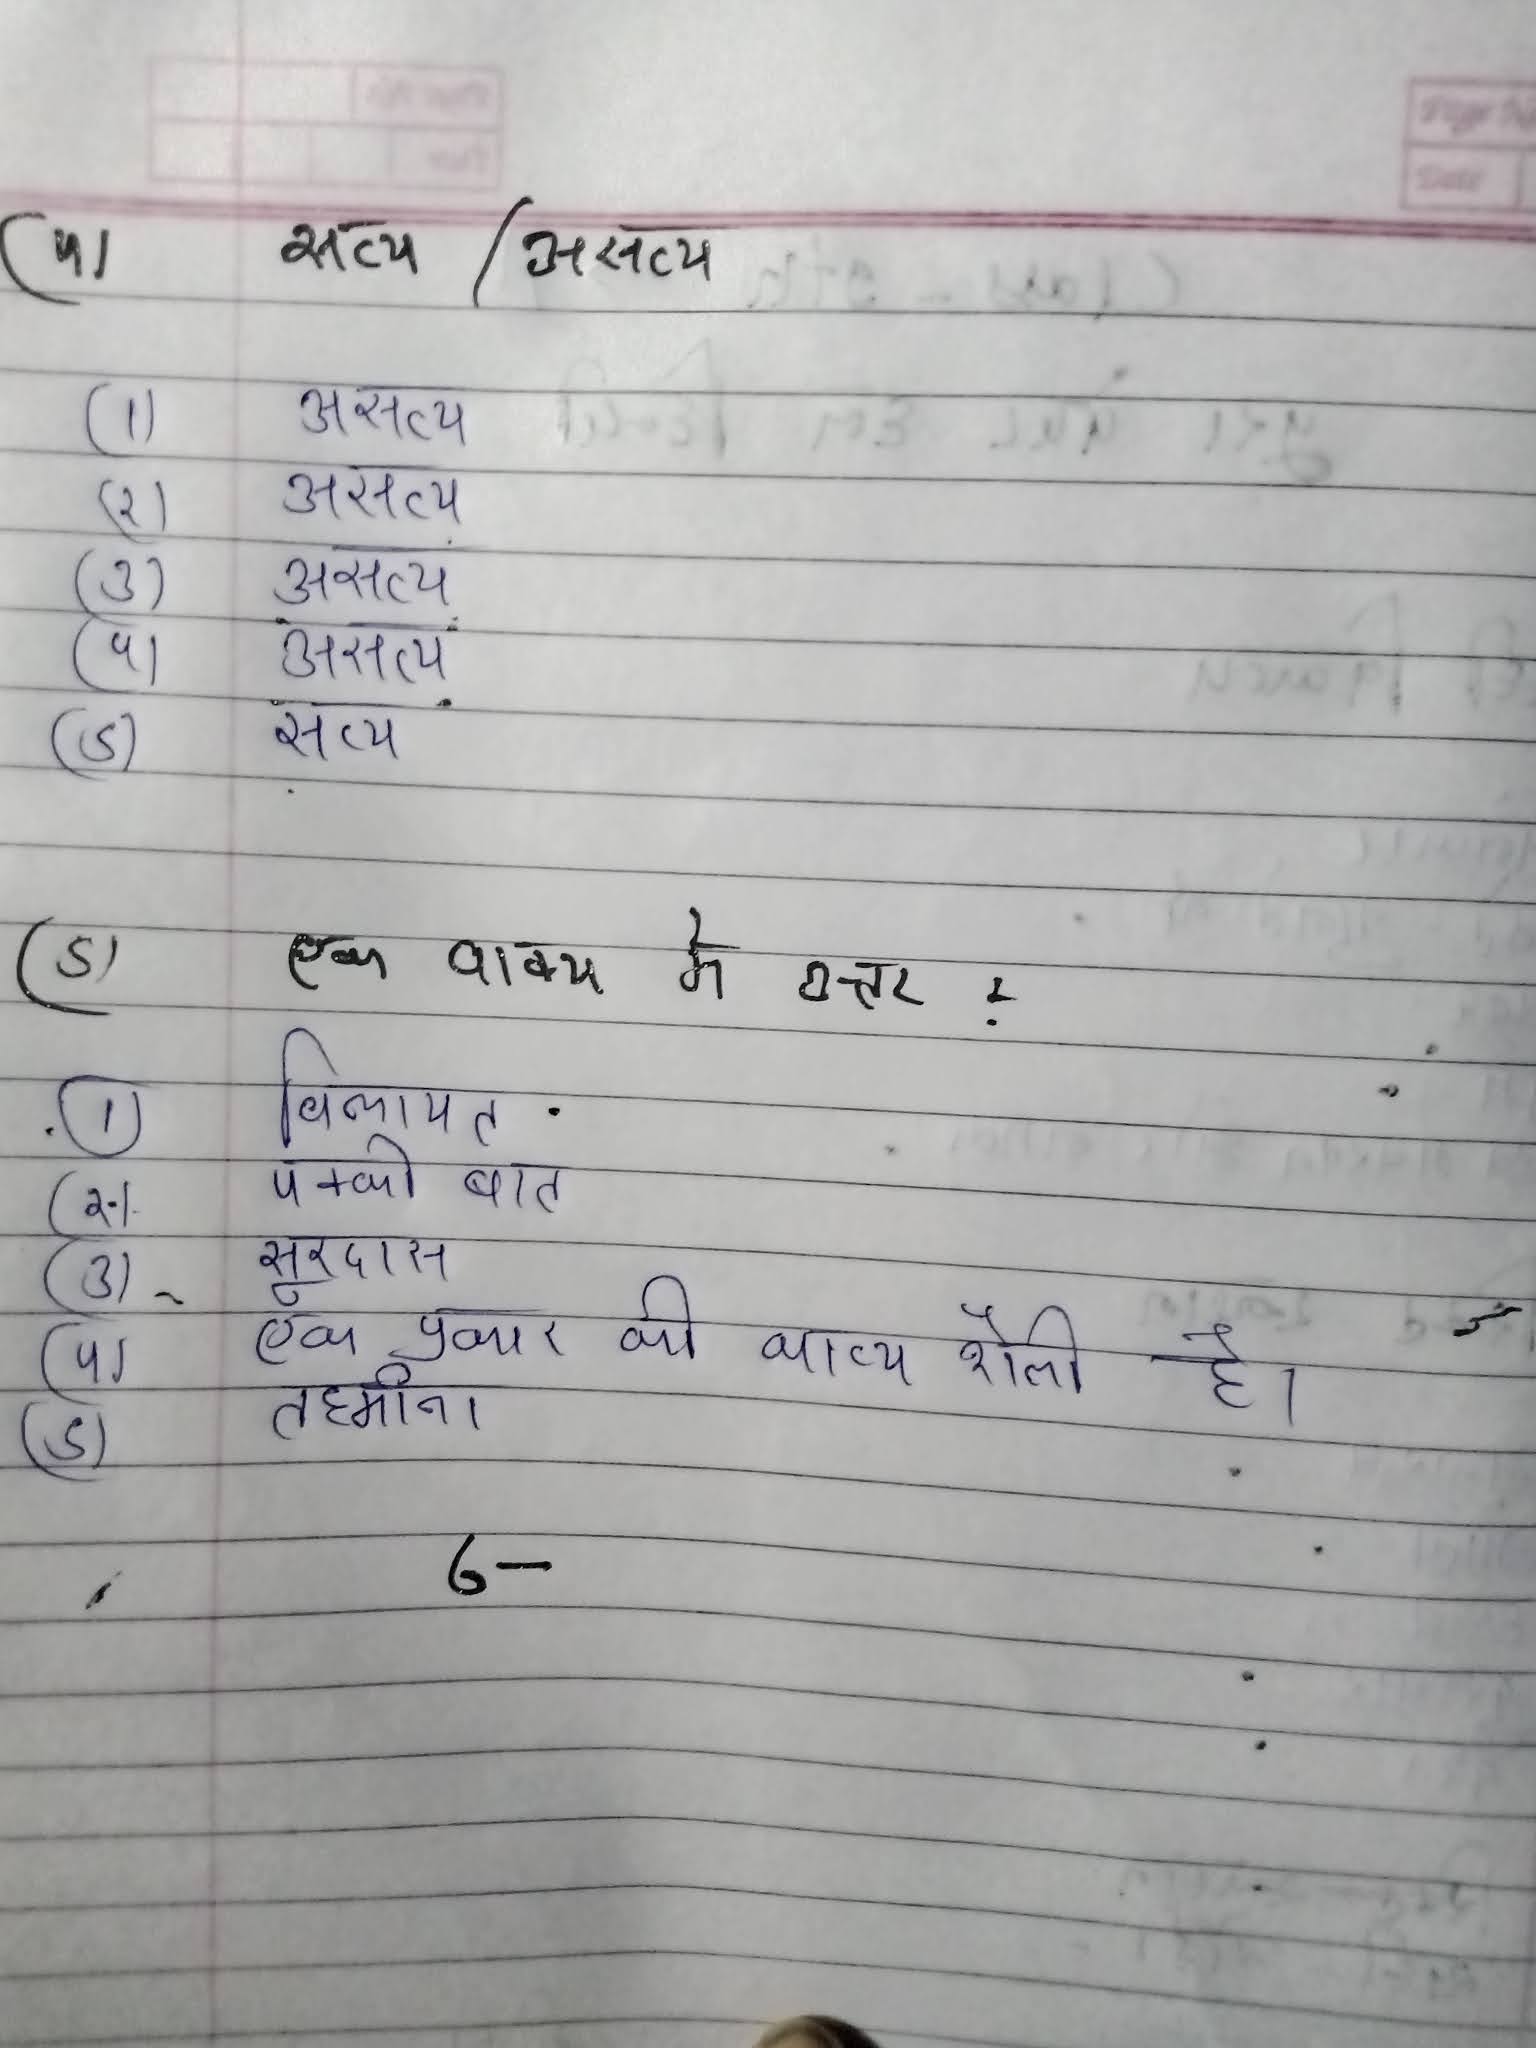 (५) सत्य / असत्य
(1) असत्य
(२) असत्य
(3) असत्य
(५) असत्य
(5) सत्य
(5) एक वाक्य में उत्तर :
(1) विलायत
(२) पक्की बात
(3) सूरदास
(५) एक प्रकार की काव्य शैली है।
(5) तहमीना
6-